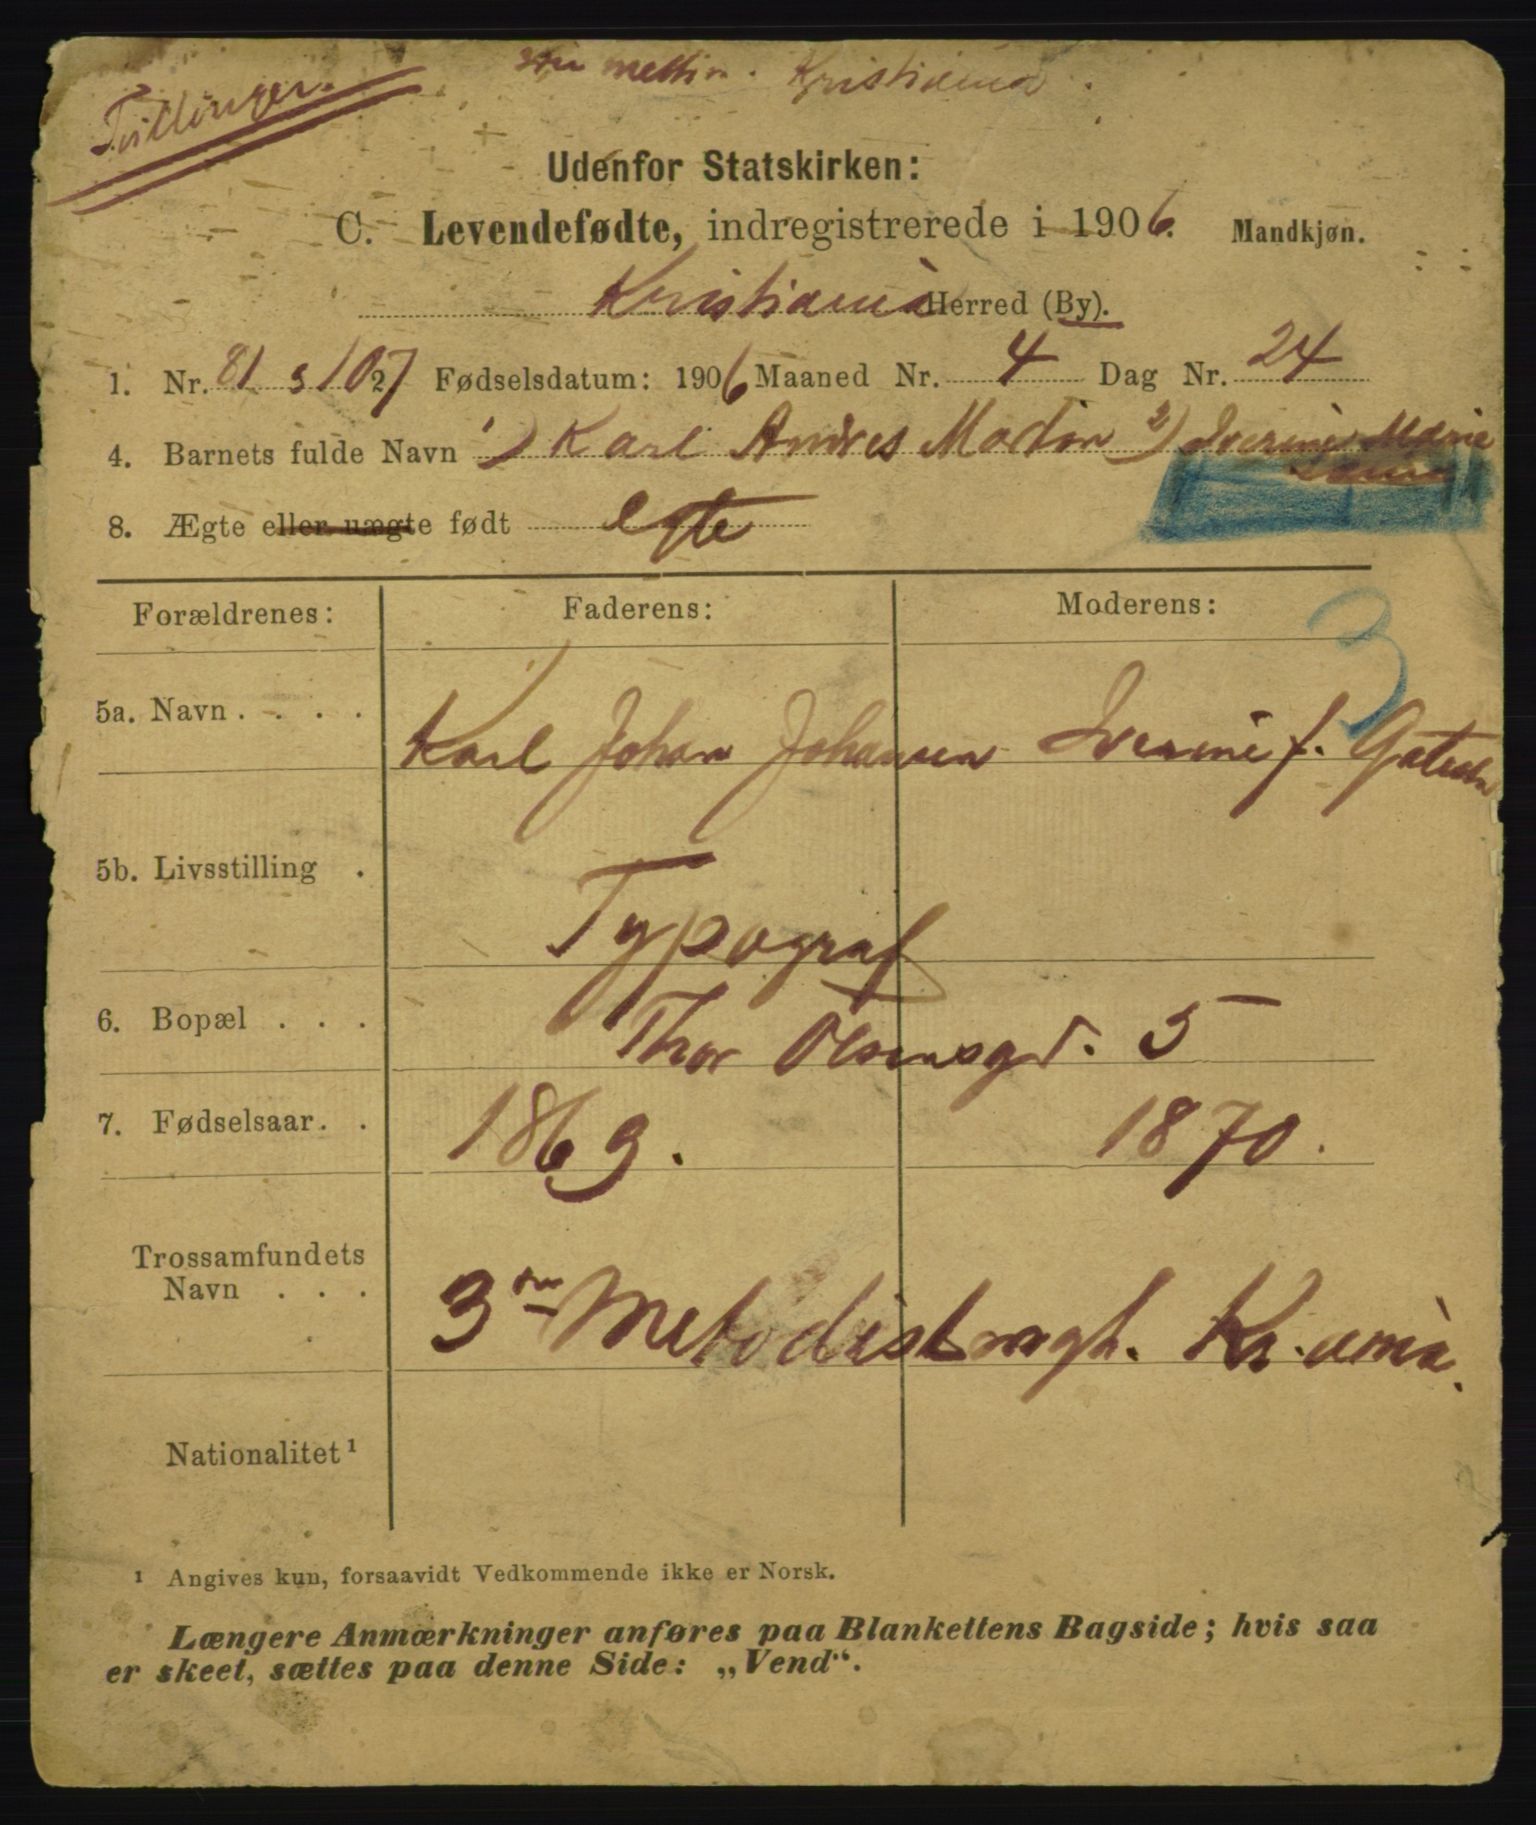 Tvillinger.
3die Meth. m. Kristiania.
Udenfor Statskirken:
C. Levendefødte, indregistrerede i 1906. Mandkjøn.
Kristiania Herred (By).
1. Nr. 81 s 107 2. Fødselsdatum: 1906 Maaned Nr. 4 Dag Nr. 24
4. Barnets fulde Navn 1) Karl Andres Martin 2) Iverine Marie
8. Ægte eller uægte født egte
Forældrenes: Faderens: Moderens:
3
5a. Navn . . . . Karl Johan Johansen Iverine f.
5b. Livsstilling . Typograf
6. Bopæl . . . Thor Olsensgd. 5
7. Fødselsaar . . 1869. 1870.
Trossamfundets
Navn . . . 3die Metodistmgh. Kr.ania.
Nationalitet¹
¹ Angives kun, forsaavidt Vedkommende ikke er Norsk.
Længere Anmærkninger anføres paa Blankettens Bagside; hvis saa
er skeet, sættes paa denne Side: „Vend“.